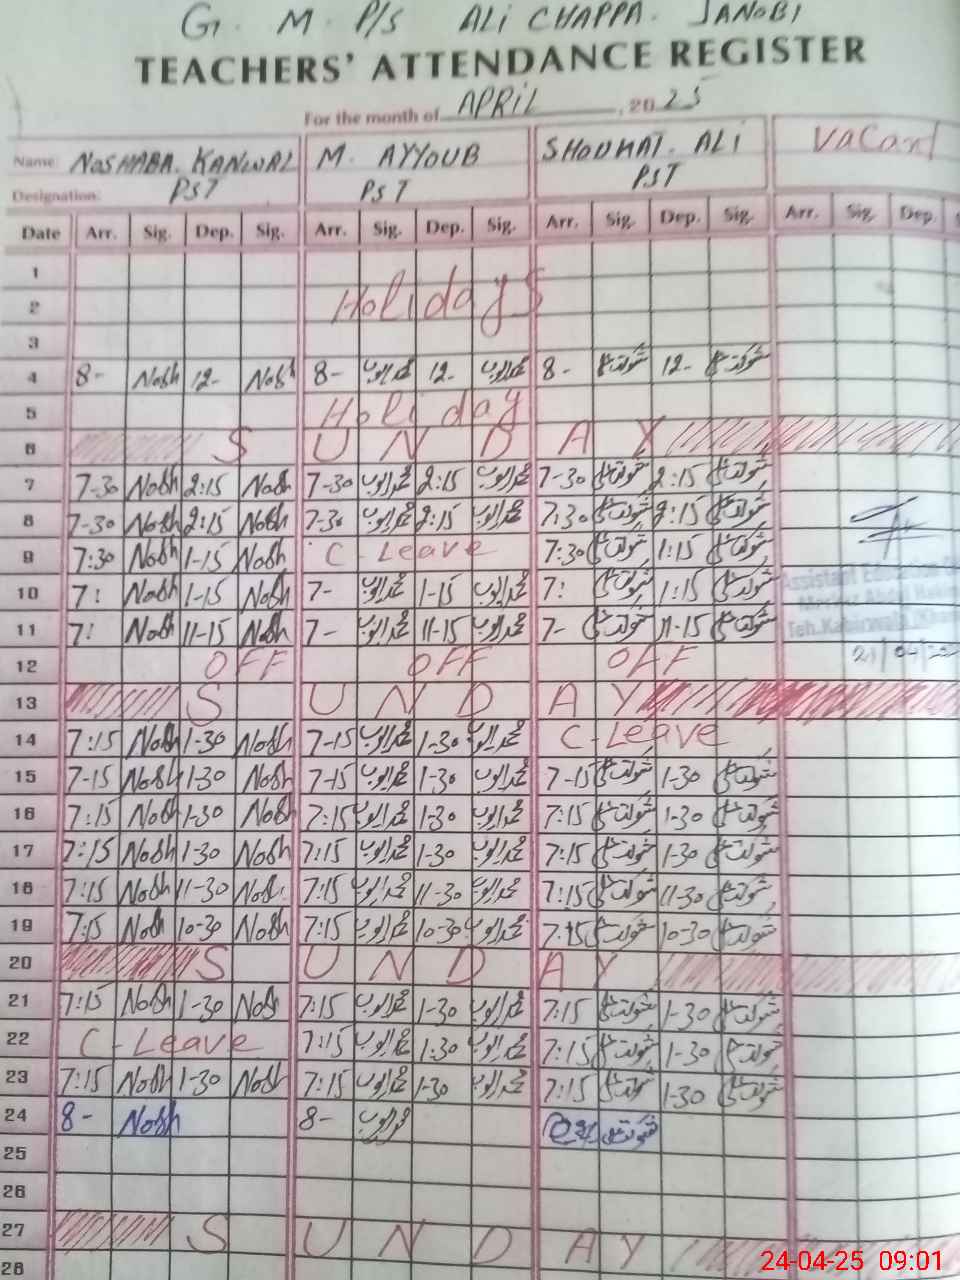 G. M. P/S ALI CHAPPA. JANOBI
TEACHERS' ATTENDANCE REGISTER
For the month of APRIL, 2025
Name: NOSHABA. KANWAL M. AYYOUB SHOUKAT. ALI Vacant
Designation: PST PST PST
Date Arr. Sig. Dep. Sig. Arr. Sig. Dep. Sig. Arr. Sig. Dep. Sig. Arr. Sig. Dep.
1
2 Holidays
3
4 8- Nosh 12- Nosh 8- محمد ایوب 12- محمد ایوب 8- شوکت علی 12- شوکت علی
5 Holiday
6 S U N D A Y
7 7-30 Nosh 2:15 Nosh 7-30 محمد ایوب 2:15 محمد ایوب 7-30 شوکت علی 2:15 شوکت علی
8 7-30 Nosh 2:15 Nosh 7-30 محمد ایوب 2:15 محمد ایوب 7:30 شوکت علی 2:15 شوکت علی
9 7:30 Nosh 1-15 Nosh C-Leave 7:30 شوکت علی 1:15 شوکت علی
10 7: Nosh 1-15 Nosh 7- محمد ایوب 1-15 محمد ایوب 7: شوکت علی 1:15 شوکت علی
Assistant Education
11 7: Nosh 11-15 Nosh 7- محمد ایوب 11-15 محمد ایوب 7- شوکت علی 11-15 شوکت علی
Markaz Abdul Hakim
Teh. Kabirwala
12 OFF OFF OFF
21/04/202
13 S U N D A Y
14 7:15 Nosh 1-30 Nosh 7-15 محمد ایوب 1-30 محمد ایوب C-Leave
15 7-15 Nosh 1-30 Nosh 7-15 محمد ایوب 1-30 محمد ایوب 7-15 شوکت علی 1-30 شوکت علی
16 7:15 Nosh 1-30 Nosh 7:15 محمد ایوب 1-30 محمد ایوب 7:15 شوکت علی 1-30 شوکت علی
17 7:15 Nosh 1-30 Nosh 7:15 محمد ایوب 1-30 محمد ایوب 7:15 شوکت علی 1-30 شوکت علی
18 7:15 Nosh 11-30 Nosh 7:15 محمد ایوب 11-30 محمد ایوب 7:15 شوکت علی 11-30 شوکت علی
19 7:15 Nosh 10-30 Nosh 7:15 محمد ایوب 10-30 محمد ایوب 7:15 شوکت علی 10-30 شوکت علی
20 S U N D A Y
21 7:15 Nosh 1-30 Nosh 7:15 محمد ایوب 1-30 محمد ایوب 7:15 شوکت علی 1-30 شوکت علی
22 C-Leave 7:15 محمد ایوب 1:30 محمد ایوب 7:15 شوکت علی 1-30 شوکت علی
23 7:15 Nosh 1-30 Nosh 7:15 محمد ایوب 1-30 محمد ایوب 7:15 شوکت علی 1-30 شوکت علی
24 8- Nosh 8- محمد ایوب شوکت علی
25
26
27 S U N D A Y
28
24-04-25 09:01